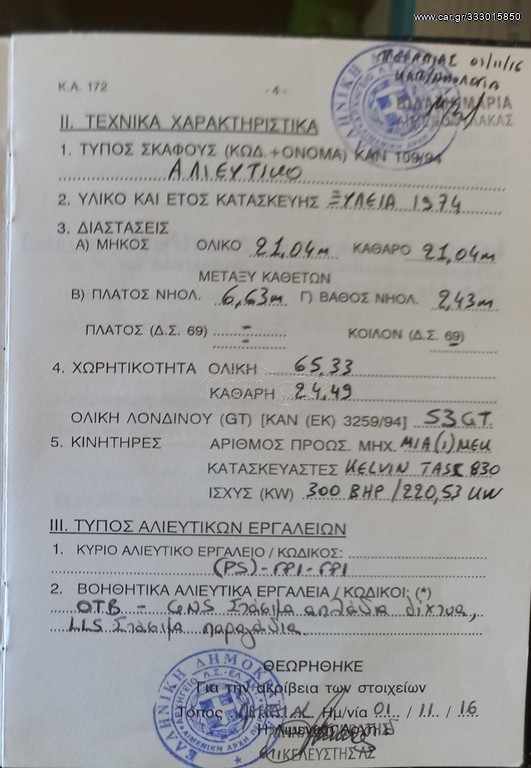 www.car.gr/333015850
01/11/16
Κ.Λ. 172
-4-
II. ΤΕΧΝΙΚΑ ΧΑΡΑΚΤΗΡΙΣΤΙΚΑ
1. ΤΥΠΟΣ ΣΚΑΦΟΥΣ (ΚΩΔ.+ΟΝΟΜΑ) ΚΑΝ 109/94
ΑΛΙΕΥΤΙΚΟ
2. ΥΛΙΚΟ ΚΑΙ ΕΤΟΣ ΚΑΤΑΣΚΕΥΗΣ ΞΥΛΕΙΑ 1974
3. ΔΙΑΣΤΑΣΕΙΣ
Α) ΜΗΚΟΣ ΟΛΙΚΟ 21,04m ΚΑΘΑΡΟ 21,04m
ΜΕΤΑΞΥ ΚΑΘΕΤΩΝ
Β) ΠΛΑΤΟΣ ΝΗΟΛ. 6,63m Γ) ΒΑΘΟΣ ΝΗΟΛ. 2,43m
ΠΛΑΤΟΣ (Δ.Σ. 69) - ΚΟΙΛΟΝ (Δ.Σ. 69) -
4. ΧΩΡΗΤΙΚΟΤΗΤΑ ΟΛΙΚΗ 65,33
ΚΑΘΑΡΗ 24,49
ΟΛΙΚΗ ΛΟΝΔΙΝΟΥ (GT) [ΚΑΝ (ΕΚ) 3259/94] 53 GT.
5. ΚΙΝΗΤΗΡΕΣ ΑΡΙΘΜΟΣ ΠΡΟΩΣ. ΜΗΧ. ΜΙΑ (1) ΜΕΚ
ΚΑΤΑΣΚΕΥΑΣΤΕΣ KELVIN TASC 830
ΙΣΧΥΣ (KW) 300 BHP/220,53 KW
III. ΤΥΠΟΣ ΑΛΙΕΥΤΙΚΩΝ ΕΡΓΑΛΕΙΩΝ
1. ΚΥΡΙΟ ΑΛΙΕΥΤΙΚΟ ΕΡΓΑΛΕΙΟ / ΚΩΔΙΚΟΣ:
(PS)-ΓΡΙ-ΓΡΙ
2. ΒΟΗΘΗΤΙΚΑ ΑΛΙΕΥΤΙΚΑ ΕΡΓΑΛΕΙΑ / ΚΩΔΙΚΟΙ: (*)
ΟΤΒ - GNS Στάσιμα απλάδια δίχτυα,
LLS Στάσιμα παραγάδια.
ΘΕΩΡΗΘΗΚΕ
Για την ακρίβεια των στοιχείων
Τόπος Ημ/νία 01 / 11 / 16
Η Λιμενική Αρχή
ΕΠΙΚΕΛΕΥΣΤΗΣ ΛΣ